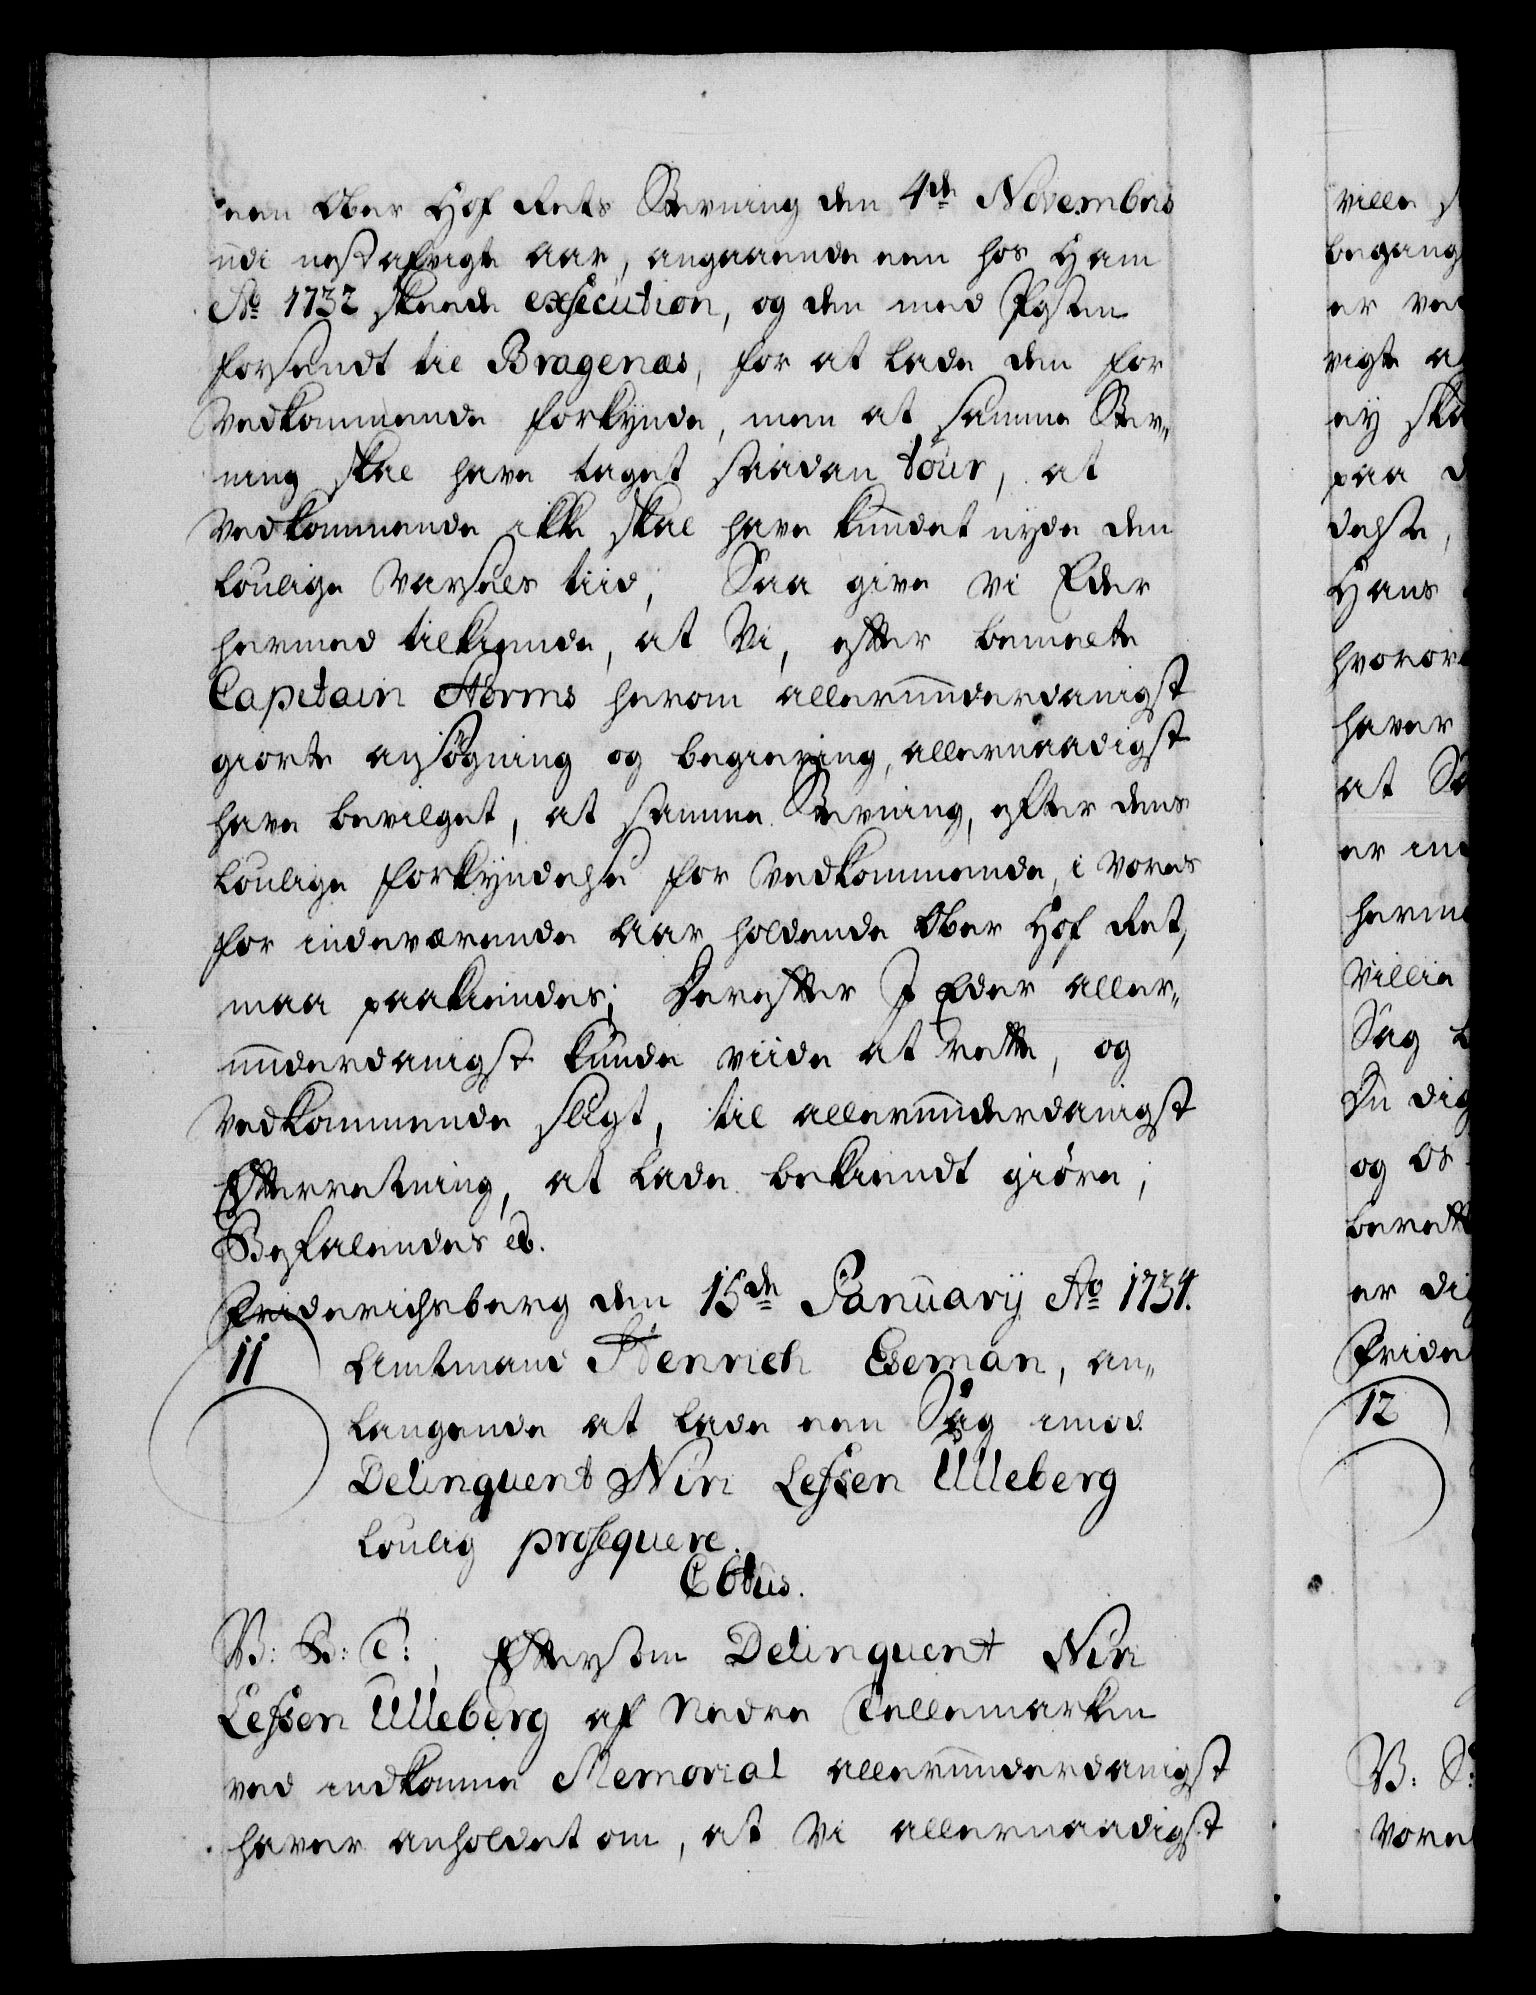 een Ober Hof Rets Stevning den 4de Novembris
udi nestafvigte aar, angaaende een hos Ham
Ao 1732 skeede execution, og den med Posten
forsendt til Bragenæs, for at lade den for
Vedkommende forkynde, men at samme Stev„
ning skal have taget saadan tour, at
Vedkommende ikke skal have kundet nyde den
Loulige Varsels tiid, Saa give vi Eder
hermed tilkiende, at Vi, efter bemelte
Capitain Storms herom allerunderdanigst
giorte ansøgning og begiering, allernaadigst
have bevilget, at samme Stevning, efter dens
Loulige forkyndelse for Vedkommende, i Vores
for indeværende Aar holdende Ober Hof Ret,
maa paakiendes; Derefter I Eder aller„
underdanigst kunde viide at rette, og
Vedkommende sligt, til allerunderdanigst
Efterretning, at lade bekiendt giøre;
Befalendes etc.
Friderichsberg den 15de Januarij Ao 1734.
11 Amtmand Henrich Eseman, an„
langende at lade een Sag imod
Delinquent Niri Lessen Ulleberg
Loulig prosequere.
CVIus.
V: S: T:, Eftersom Delinquent Niri
Lessen Ulleberg af Nedre Tellemarken
ved indkomme Memorial allerunderdanigst
haver anholdet om, at Vi allernaadigst
ville
begang
er
vigte
ey
paa
delse,
Hans
hvorov
haver
at
er
herm
Villie
Sag
Du dig
og os
berett
er di
Fride
12
V: S:
Vore